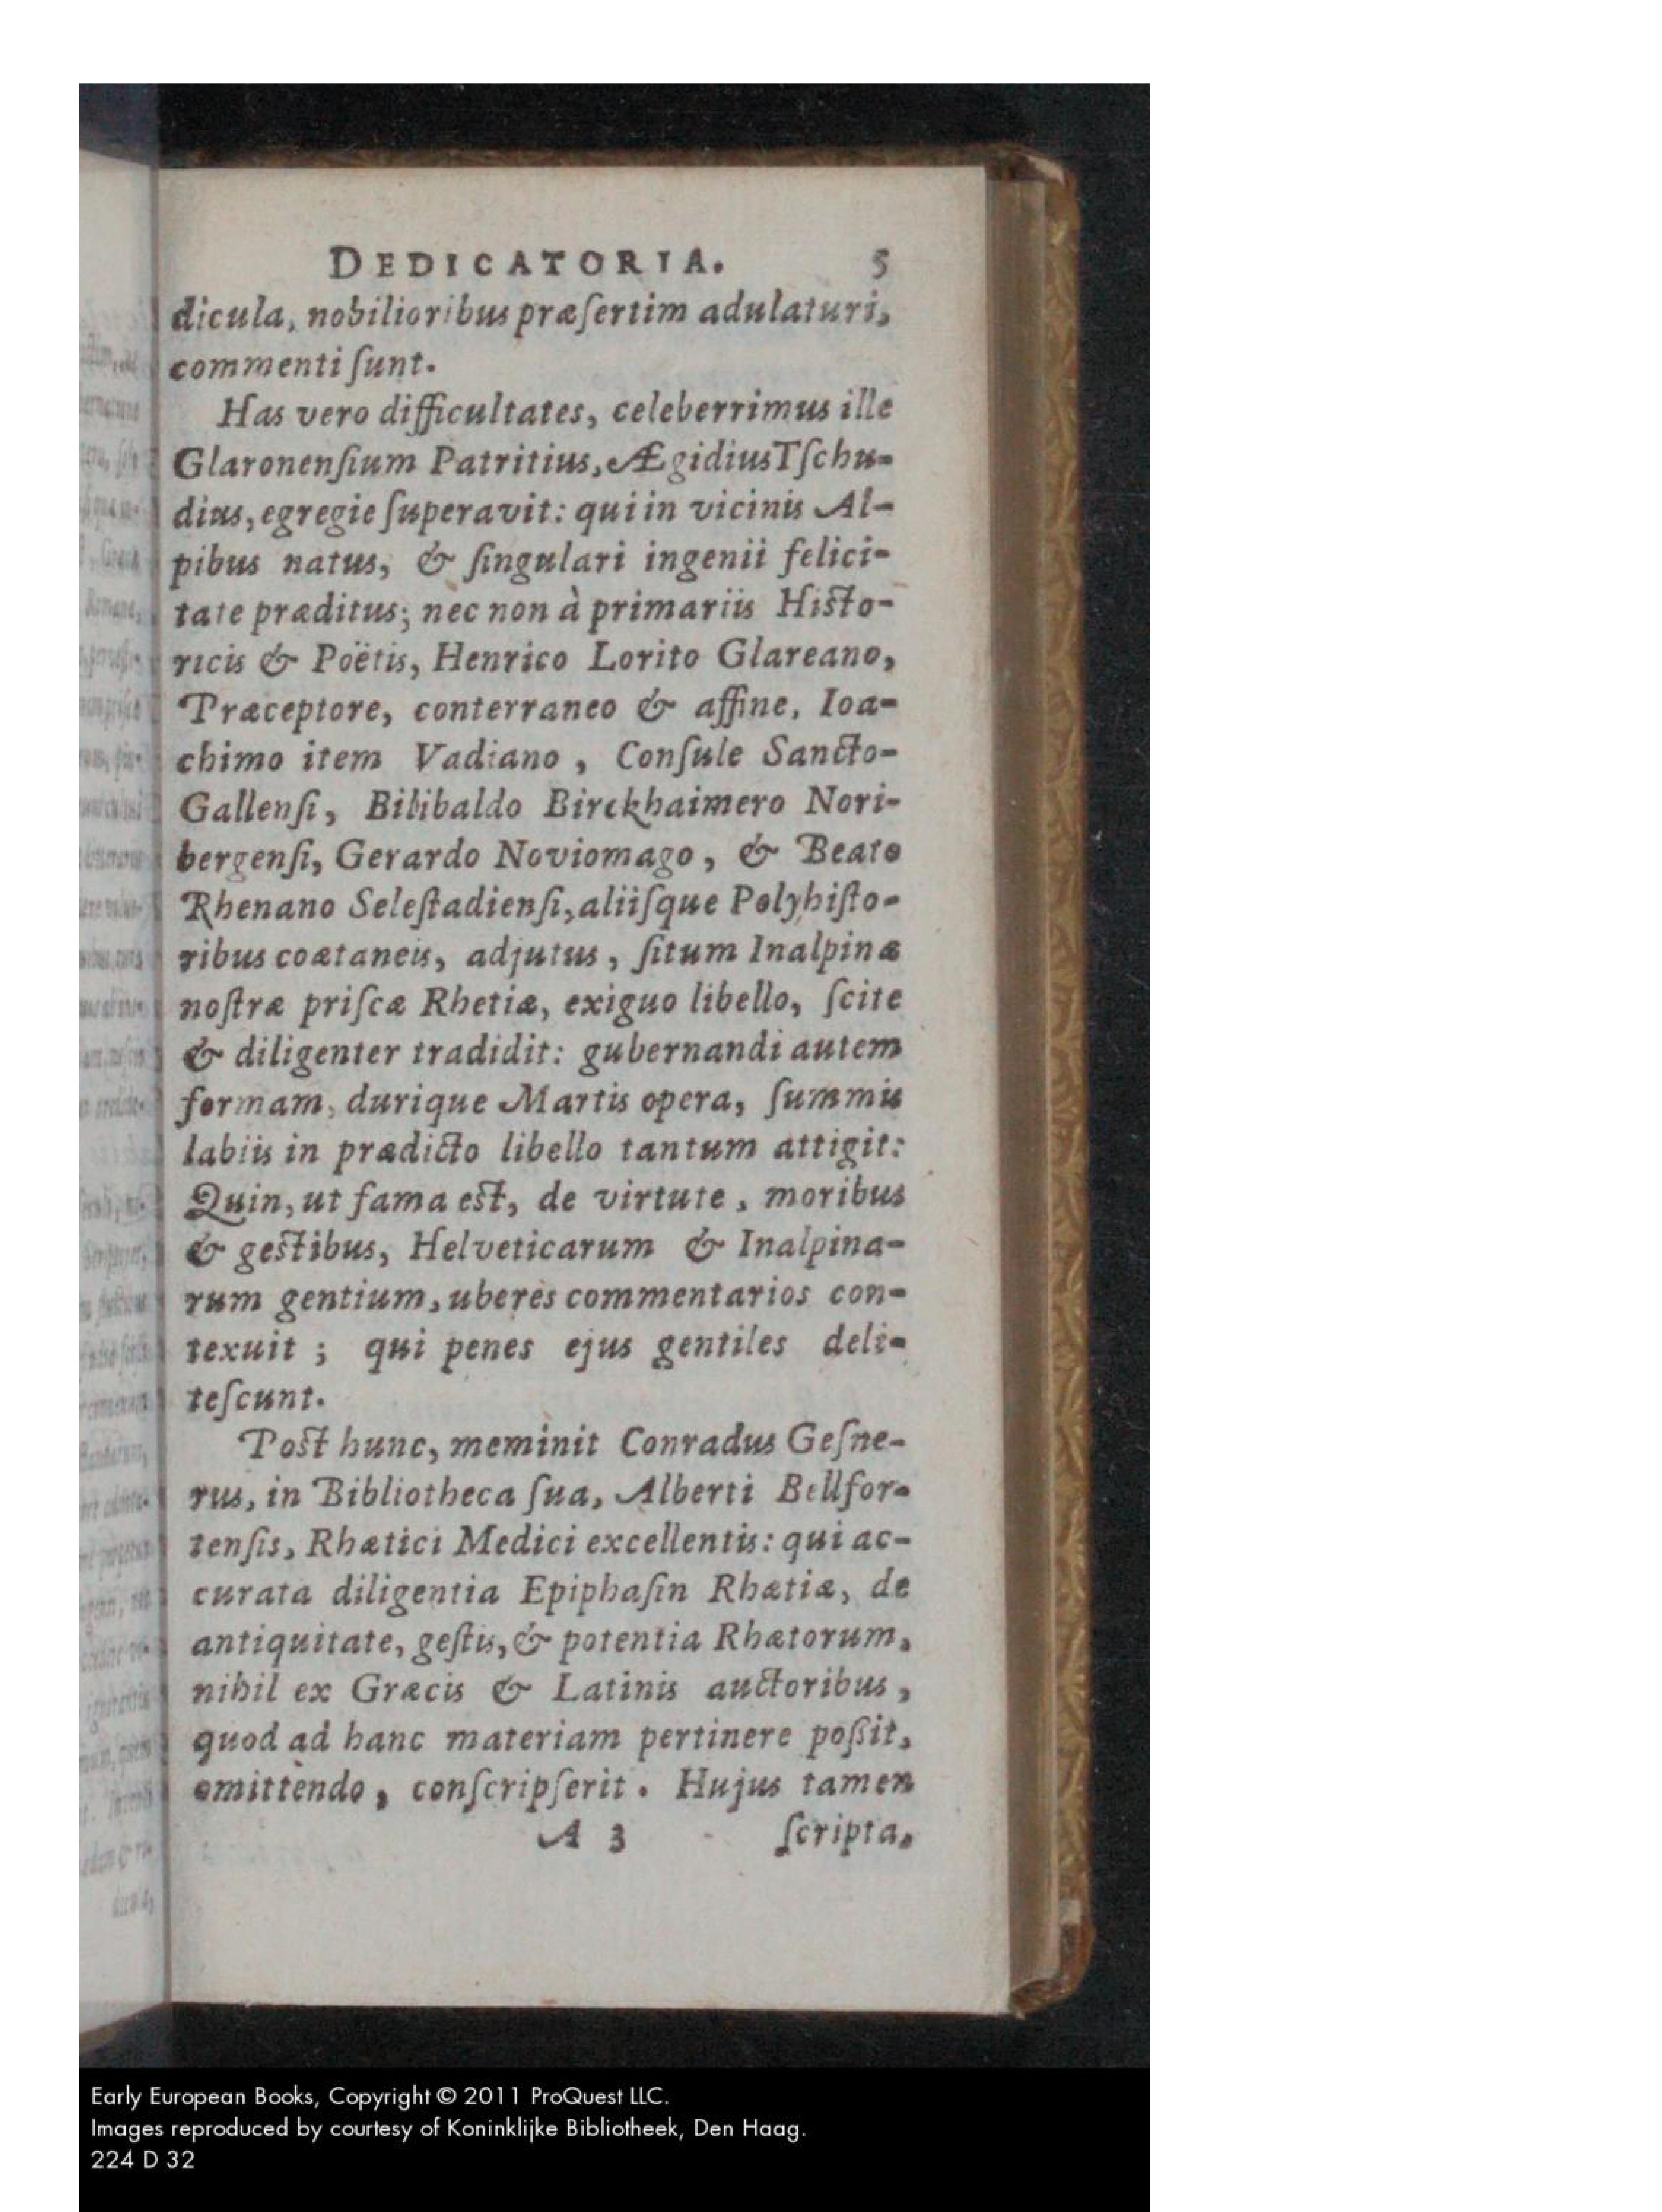 DEDICATORIA. 5
dicula, nobilioribus præſertim adulaturi,
commenti ſunt.
Has vero difficultates, celeberrimus ille
Glaronenſium Patritius, Ægidius Tſchu-
dius, egregie ſuperavit: qui in vicinis Al-
pibus natus, & ſingulari ingenii felici-
tate præditus; nec non à primariis Histo-
ricis & Poëtis, Henrico Lorito Glareano,
Præceptore, conterraneo & affine, Ioa-
chimo item Vadiano, Conſule Sancto-
Gallenſi, Bilibaldo Birckhaimero Nori-
bergenſi, Gerardo Noviomago, & Beato
Rhenano Seleſtadienſi, aliiſque Polyhiſto-
ribus coætaneis, adjutus, ſitum Inalpinæ
noſtræ priſcæ Rhetiæ, exiguo libello, ſcite
& diligenter tradidit: gubernandi autem
formam, durique Martis opera, ſummis
labiis in prædicto libello tantum attigit:
Quin, ut fama est, de virtute, moribus
& gestibus, Helveticarum & Inalpina-
rum gentium, uberes commentarios con-
texuit; qui penes ejus gentiles deli-
teſcunt.
Post hunc, meminit Conradus Geſne-
rus, in Bibliotheca ſua, Alberti Bellfor-
tenſis, Rhætici Medici excellentis: qui ac-
curata diligentia Epiphaſin Rhætiæ, de
antiquitate, geſtis, & potentia Rhætorum,
nihil ex Græcis & Latinis auctoribus,
quod ad hanc materiam pertinere poſsit,
omittendo, conſcripſerit. Hujus tamen
A 3 ſcripta,
Early European Books, Copyright © 2011 ProQuest LLC.
Images reproduced by courtesy of Koninklijke Bibliotheek, Den Haag.
224 D 32